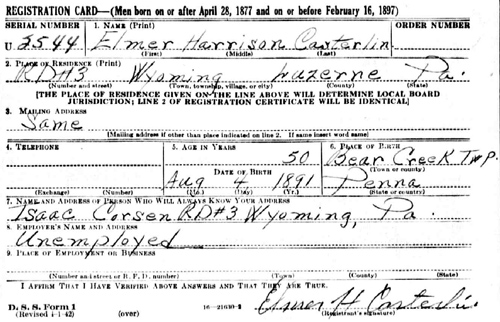 REGISTRATION CARD—(Men born on or after April 28, 1877 and on or before February 16, 1897)
SERIAL NUMBER 1. NAME (Print) ORDER NUMBER
U 3544 Elmer Harrison Casterlin
(First) (Middle) (Last)
2. PLACE OF RESIDENCE (Print)
RD#3 Wyoming Luzerne Pa.
(Number and street) (Town, township, village, or city) (County) (State)
[THE PLACE OF RESIDENCE GIVEN ON THE LINE ABOVE WILL DETERMINE LOCAL BOARD
JURISDICTION; LINE 2 OF REGISTRATION CERTIFICATE WILL BE IDENTICAL]
3. MAILING ADDRESS
Same
[Mailing address if other than place indicated on line 2. If same insert word same]
4. TELEPHONE 5. AGE IN YEARS 6. PLACE OF BIRTH
50 Bear Creek Twp.
DATE OF BIRTH (Town or county)
Aug 4 1891 Penna
(Exchange) (Number) (Mo.) (Day) (Yr.) (State or country)
7. NAME AND ADDRESS OF PERSON WHO WILL ALWAYS KNOW YOUR ADDRESS
Isaac Corsen RD#3 Wyoming, Pa.
8. EMPLOYER'S NAME AND ADDRESS
Unemployed
9. PLACE OF EMPLOYMENT OR BUSINESS
(Number and street or R. F. D. number) (Town) (County) (State)
I AFFIRM THAT I HAVE VERIFIED ABOVE ANSWERS AND THAT THEY ARE TRUE.
D. S. S. Form 1 16—21630-2 Elmer H Casterlin
(Revised 4-1-42) (over) (Registrant's signature)